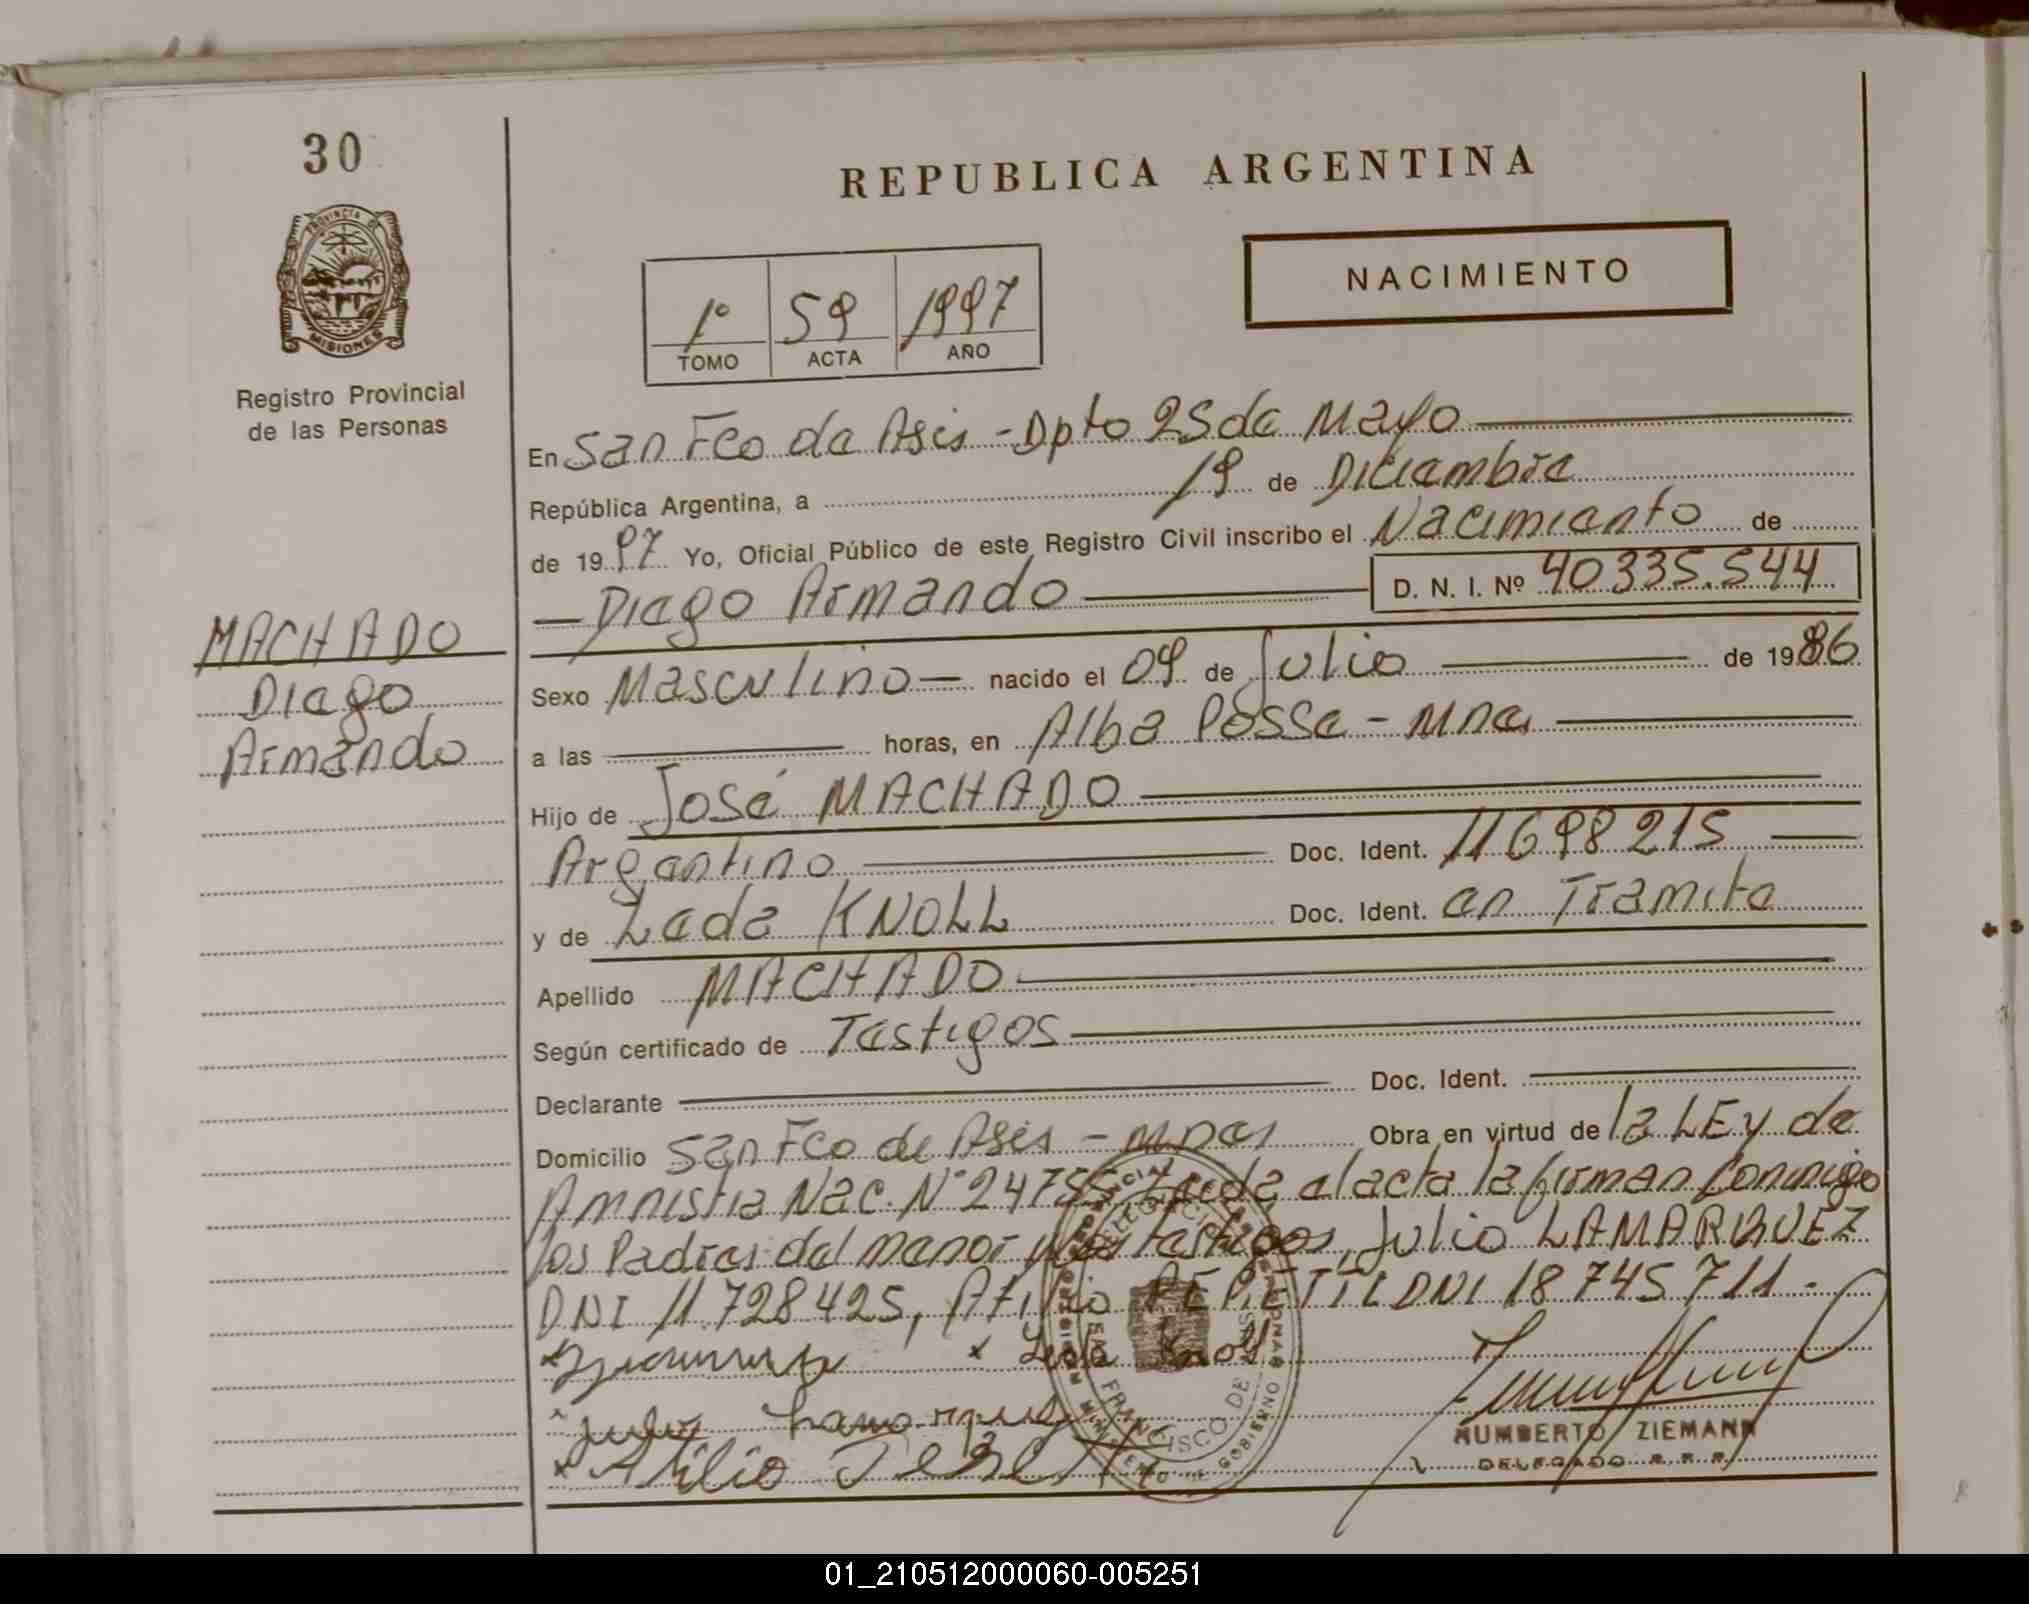 30
REPUBLICA ARGENTINA
NACIMIENTO
1º 59 1997
TOMO ACTA AÑO
PROVINCIA DE
MISIONES
Registro Provincial
de las Personas
MACHADO
Diego
Armando
En San Fco de Asis - Dpto 25 de Mayo
República Argentina, a 19 de Diciembre
de 1997 Yo, Oficial Público de este Registro Civil inscribo el Nacimiento de
Diego Armando D. N. I. Nº 40335.544
Sexo Masculino nacido el 09 de Julio de 1986
a las horas, en Alba Posse - Mnes
Hijo de José MACHADO
Argentino Doc. Ident. 11698215
y de Leda KNOLL Doc. Ident. en Tramite
Apellido MACHADO
Según certificado de Testigos
Declarante Doc. Ident.
Domicilio San Fco de Asis - Mnes Obra en virtud de la LEy de
Amnistia Nac. Nº 24755 Leida el acta la firman Conmigo
los Padres del menor y los testigos, Julio LAMARQUEZ
DNI 11.728425, Atilio DNI 18745711.-
x Leda Knoll
Julio Lamarquez
x Atilio
HUMBERTO ZIEMANN
DELEGADO R.R.P.
01_210512000060-005251